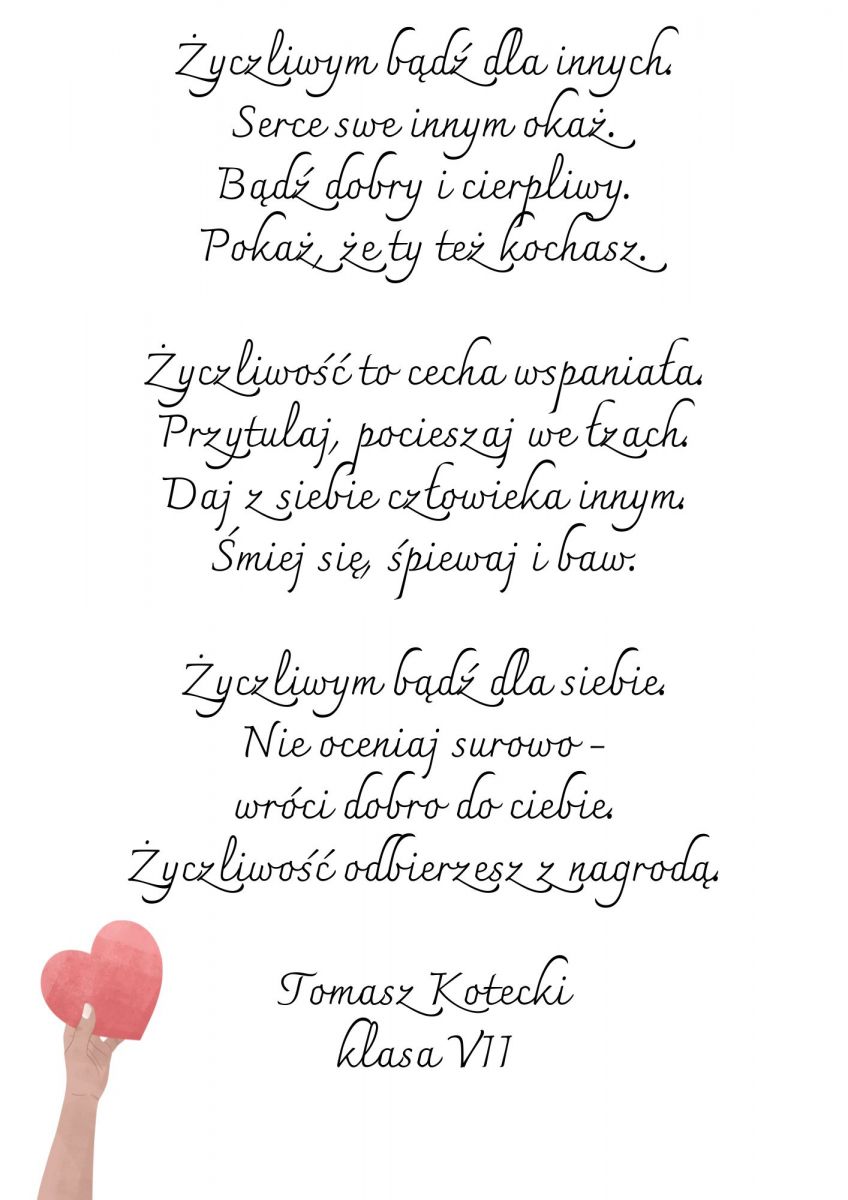 Życzliwym bądź dla innych.
Serce swe innym okaż.
Bądź dobry i cierpliwy.
Pokaż, że ty też kochasz.
Życzliwość to cecha wspaniała.
Przytulaj, pocieszaj we łzach.
Daj z siebie człowieka innym.
Śmiej się, śpiewaj i baw.
Życzliwym bądź dla siebie.
Nie oceniaj surowo -
wróci dobro do ciebie.
Życzliwość odbierzesz z nagrodą.
Tomasz Kotecki
klasa VII